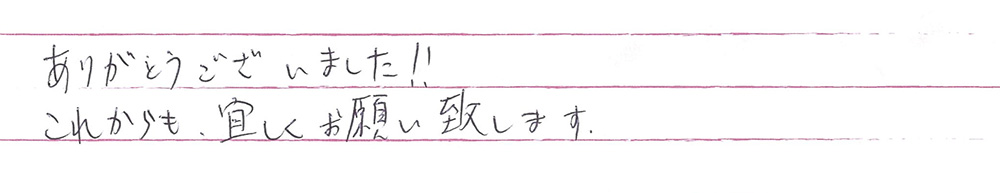 ありがとうございました!!
これからも、宜しくお願い致します.